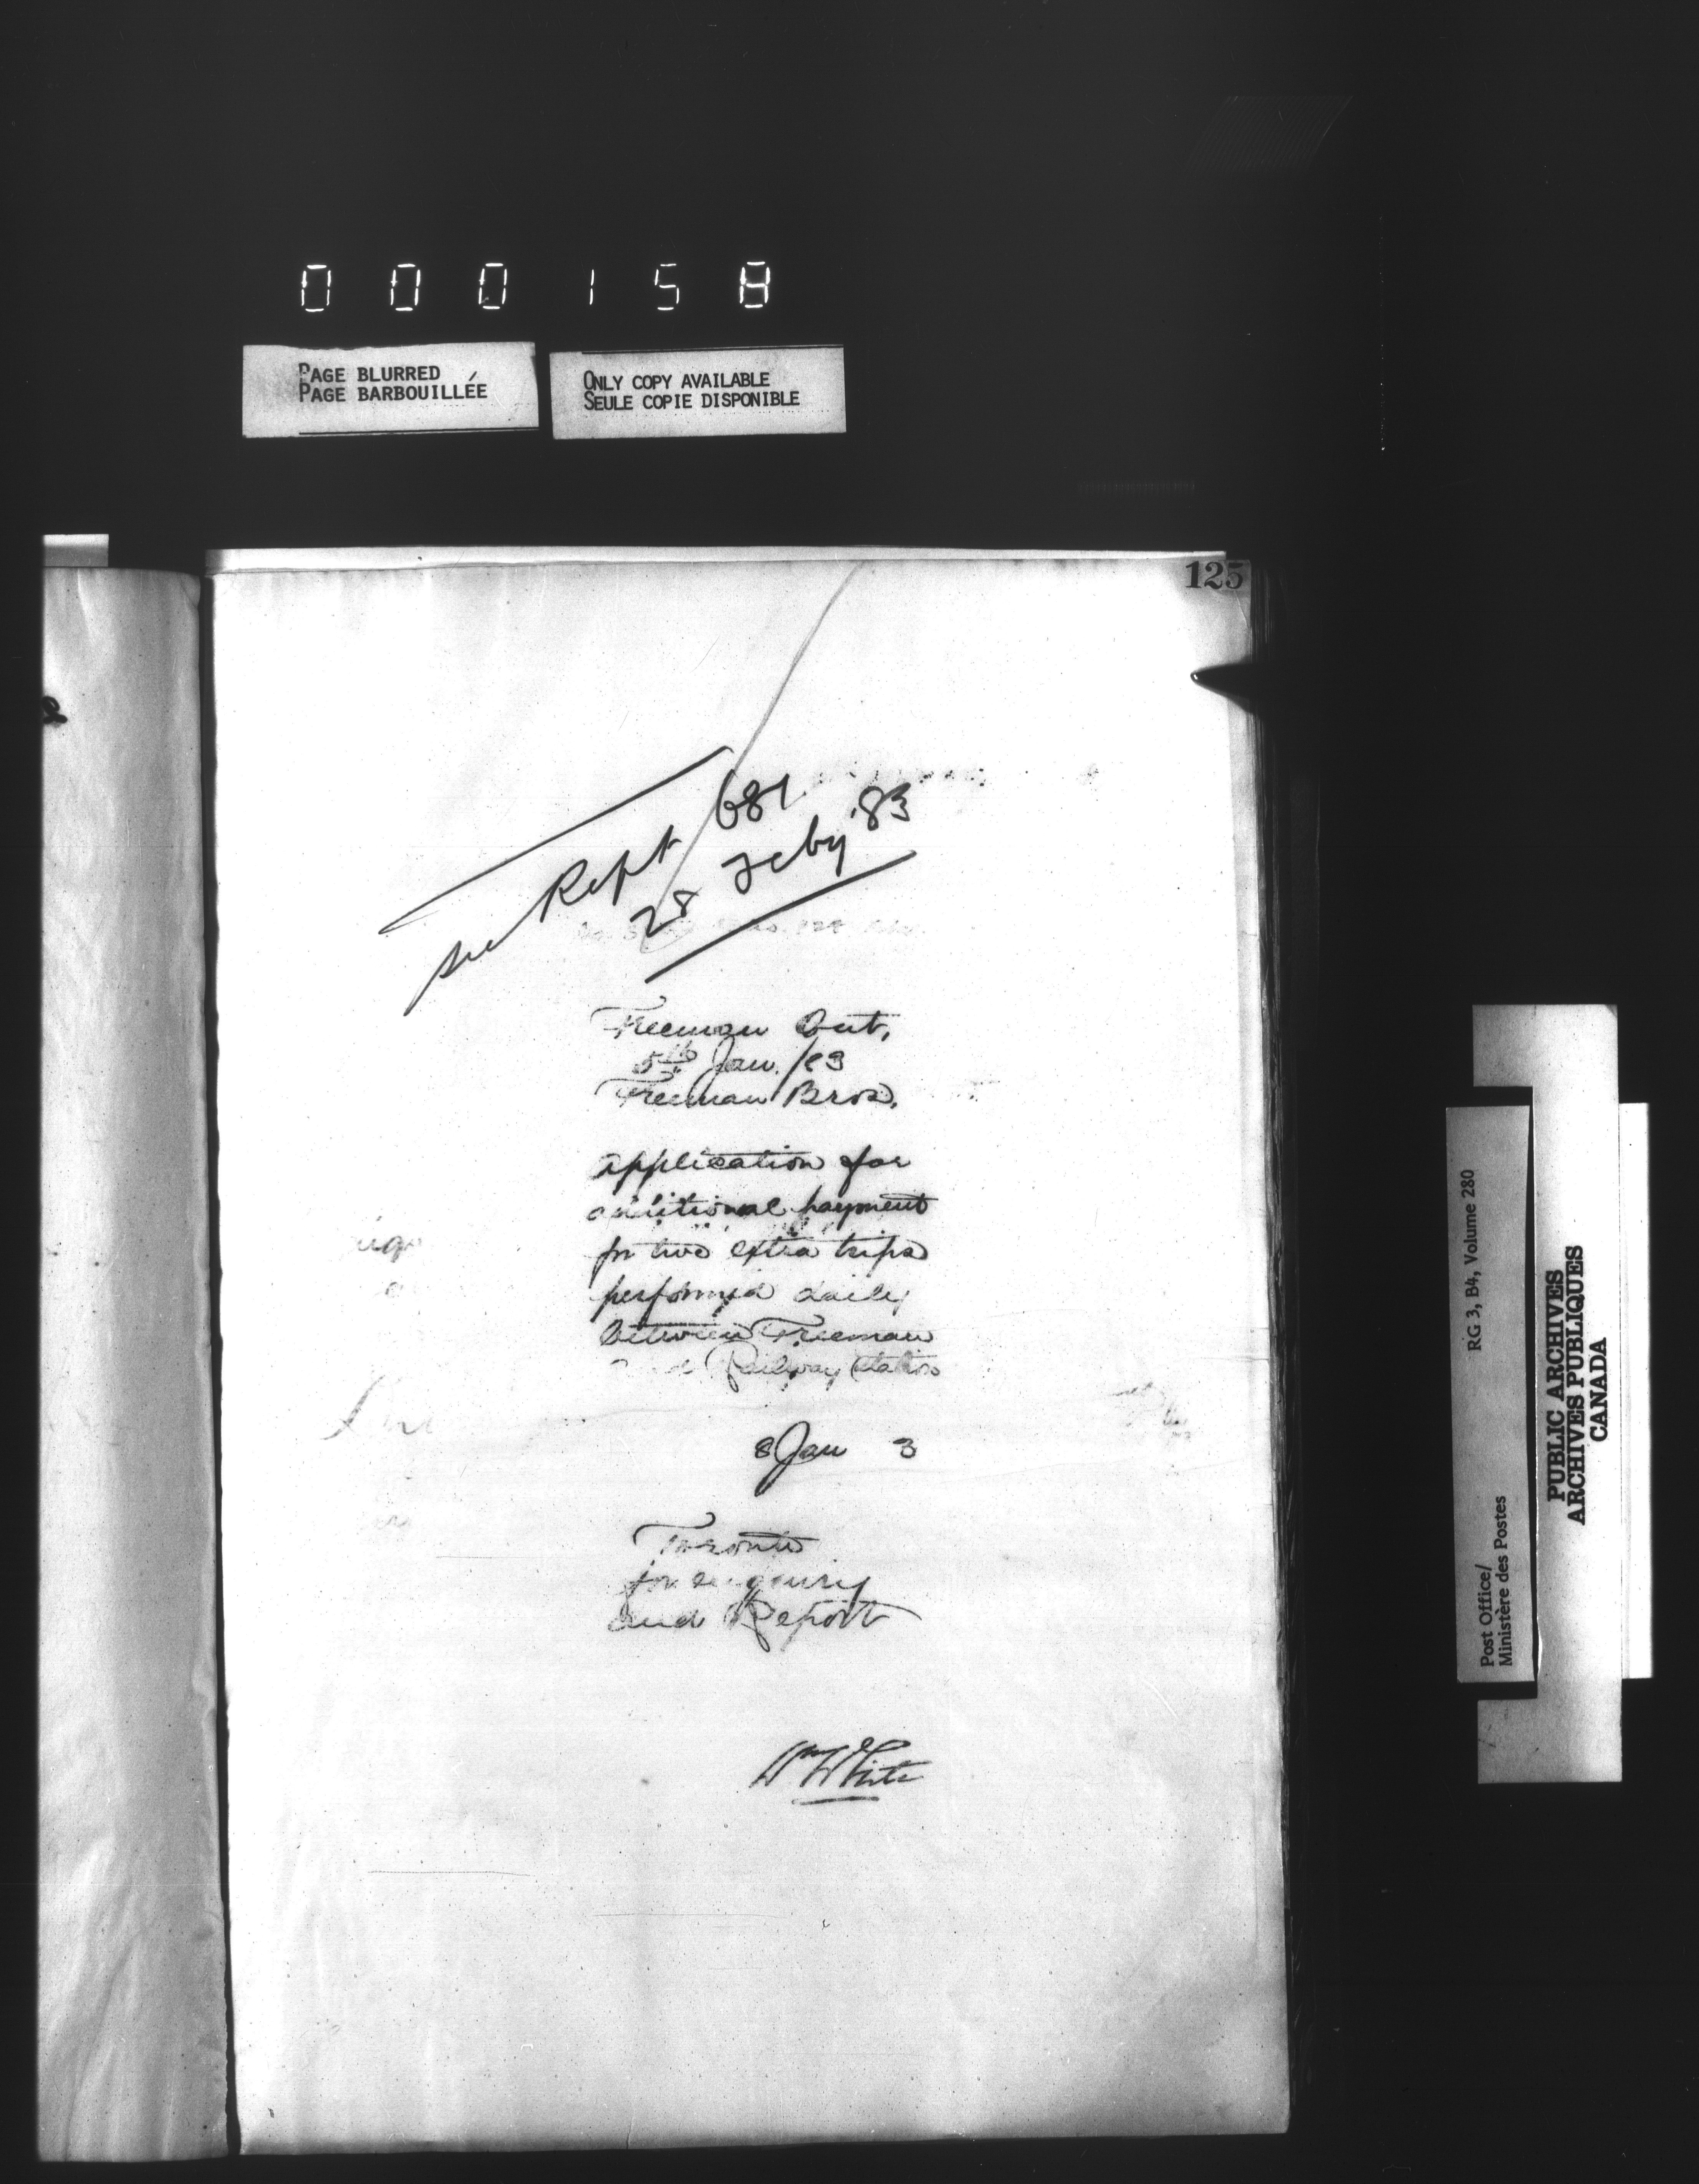 000158
PAGE BLURRED
PAGE BARBOUILLÉE
ONLY COPY AVAILABLE
SEULE COPIE DISPONIBLE
125
see Rept 681
28 Feby '83
Freeman Ont,
5th Jan. /83
Freeman Bros.
application for
additional payment
for two extra trips
performed daily
between Freeman
Railway Station
8 Jan 3
Toronto
for enquiry
and Report
Wm White
Post Office/
Ministère des Postes
RG 3, B4, Volume 280
PUBLIC ARCHIVES
ARCHIVES PUBLIQUES
CANADA